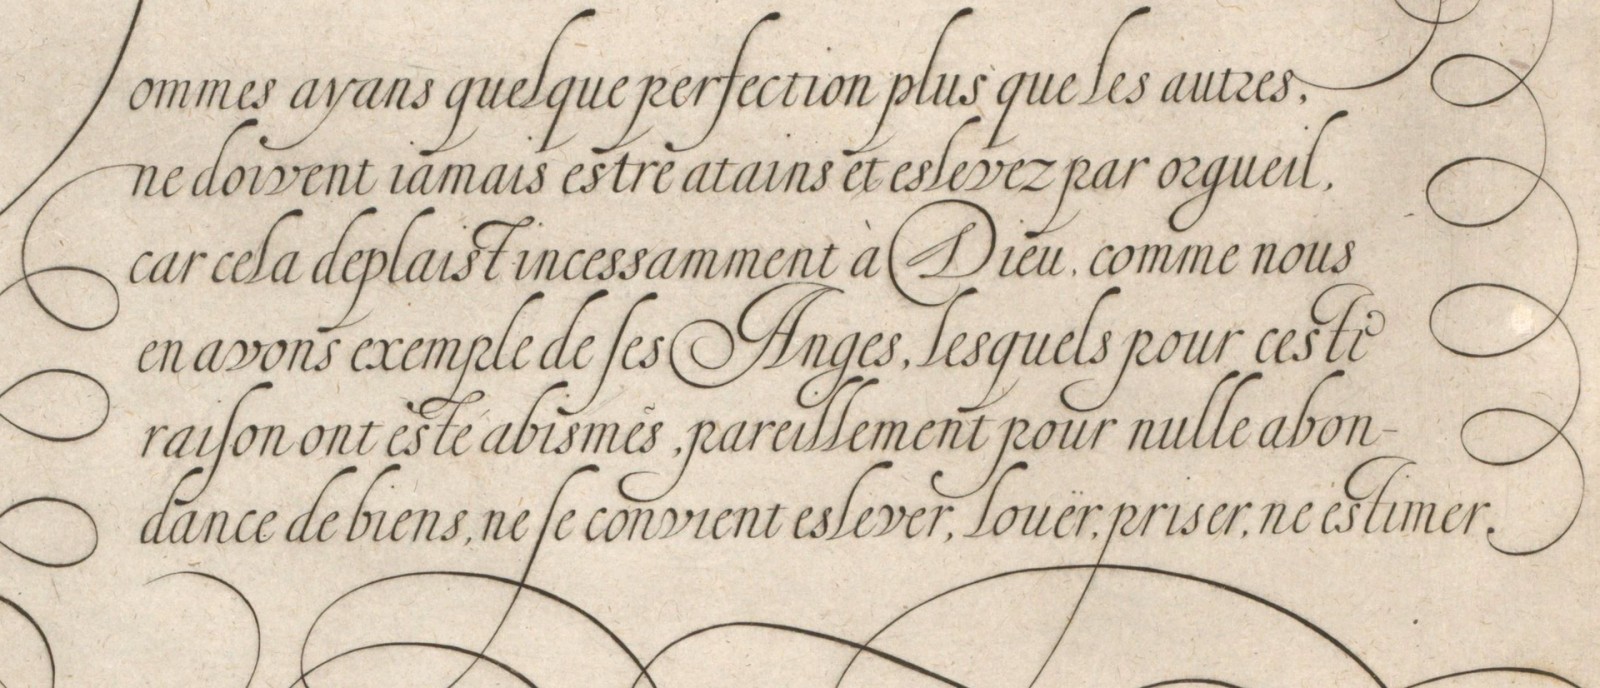 ommes ayans quelque perfection plus que les autres,
ne doivent iamais estre atains et eslevez par orgueil,
car cela deplaist incessamment à Dieu, comme nous
en avons exemple de ses Anges, lesquels pour ceste
raison ont esté abismés, pareillement pour nulle abon-
dance de biens, ne se convient eslever, louër, priser, ne estimer.